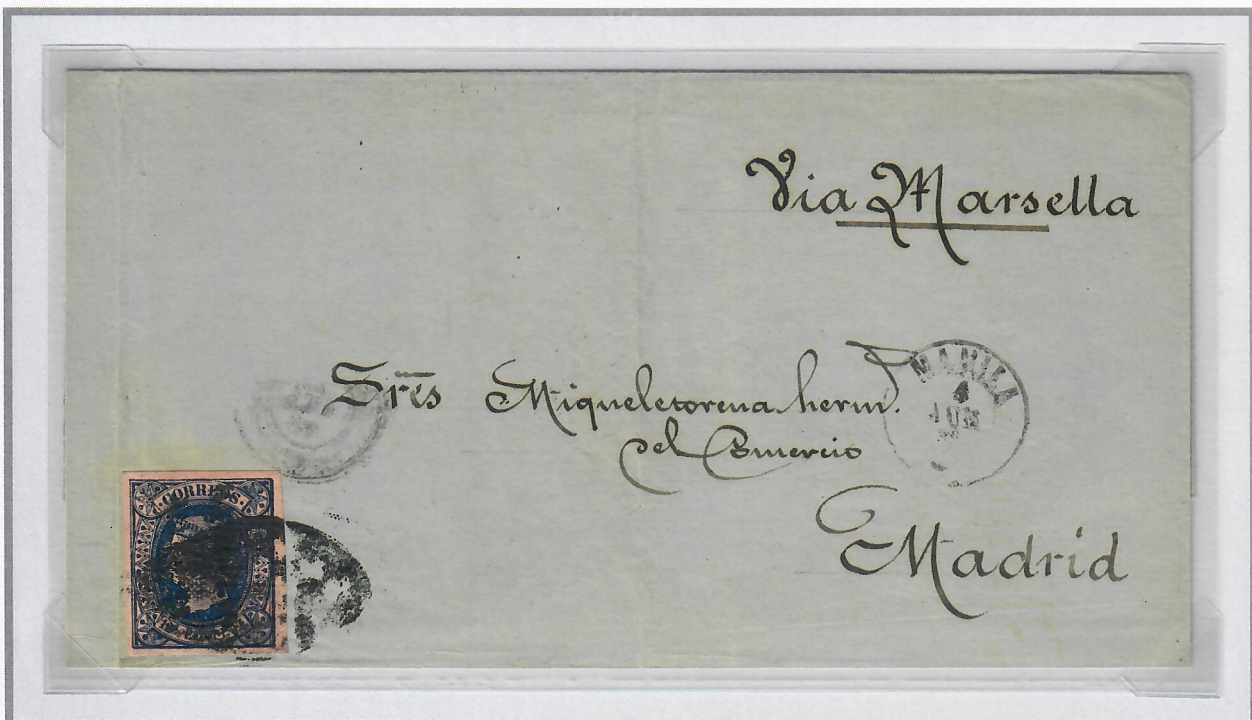 Via Marsella
Sres Miqueletorena herm.
del Comercio
Madrid
MANILA
4
JUN
CORREOS